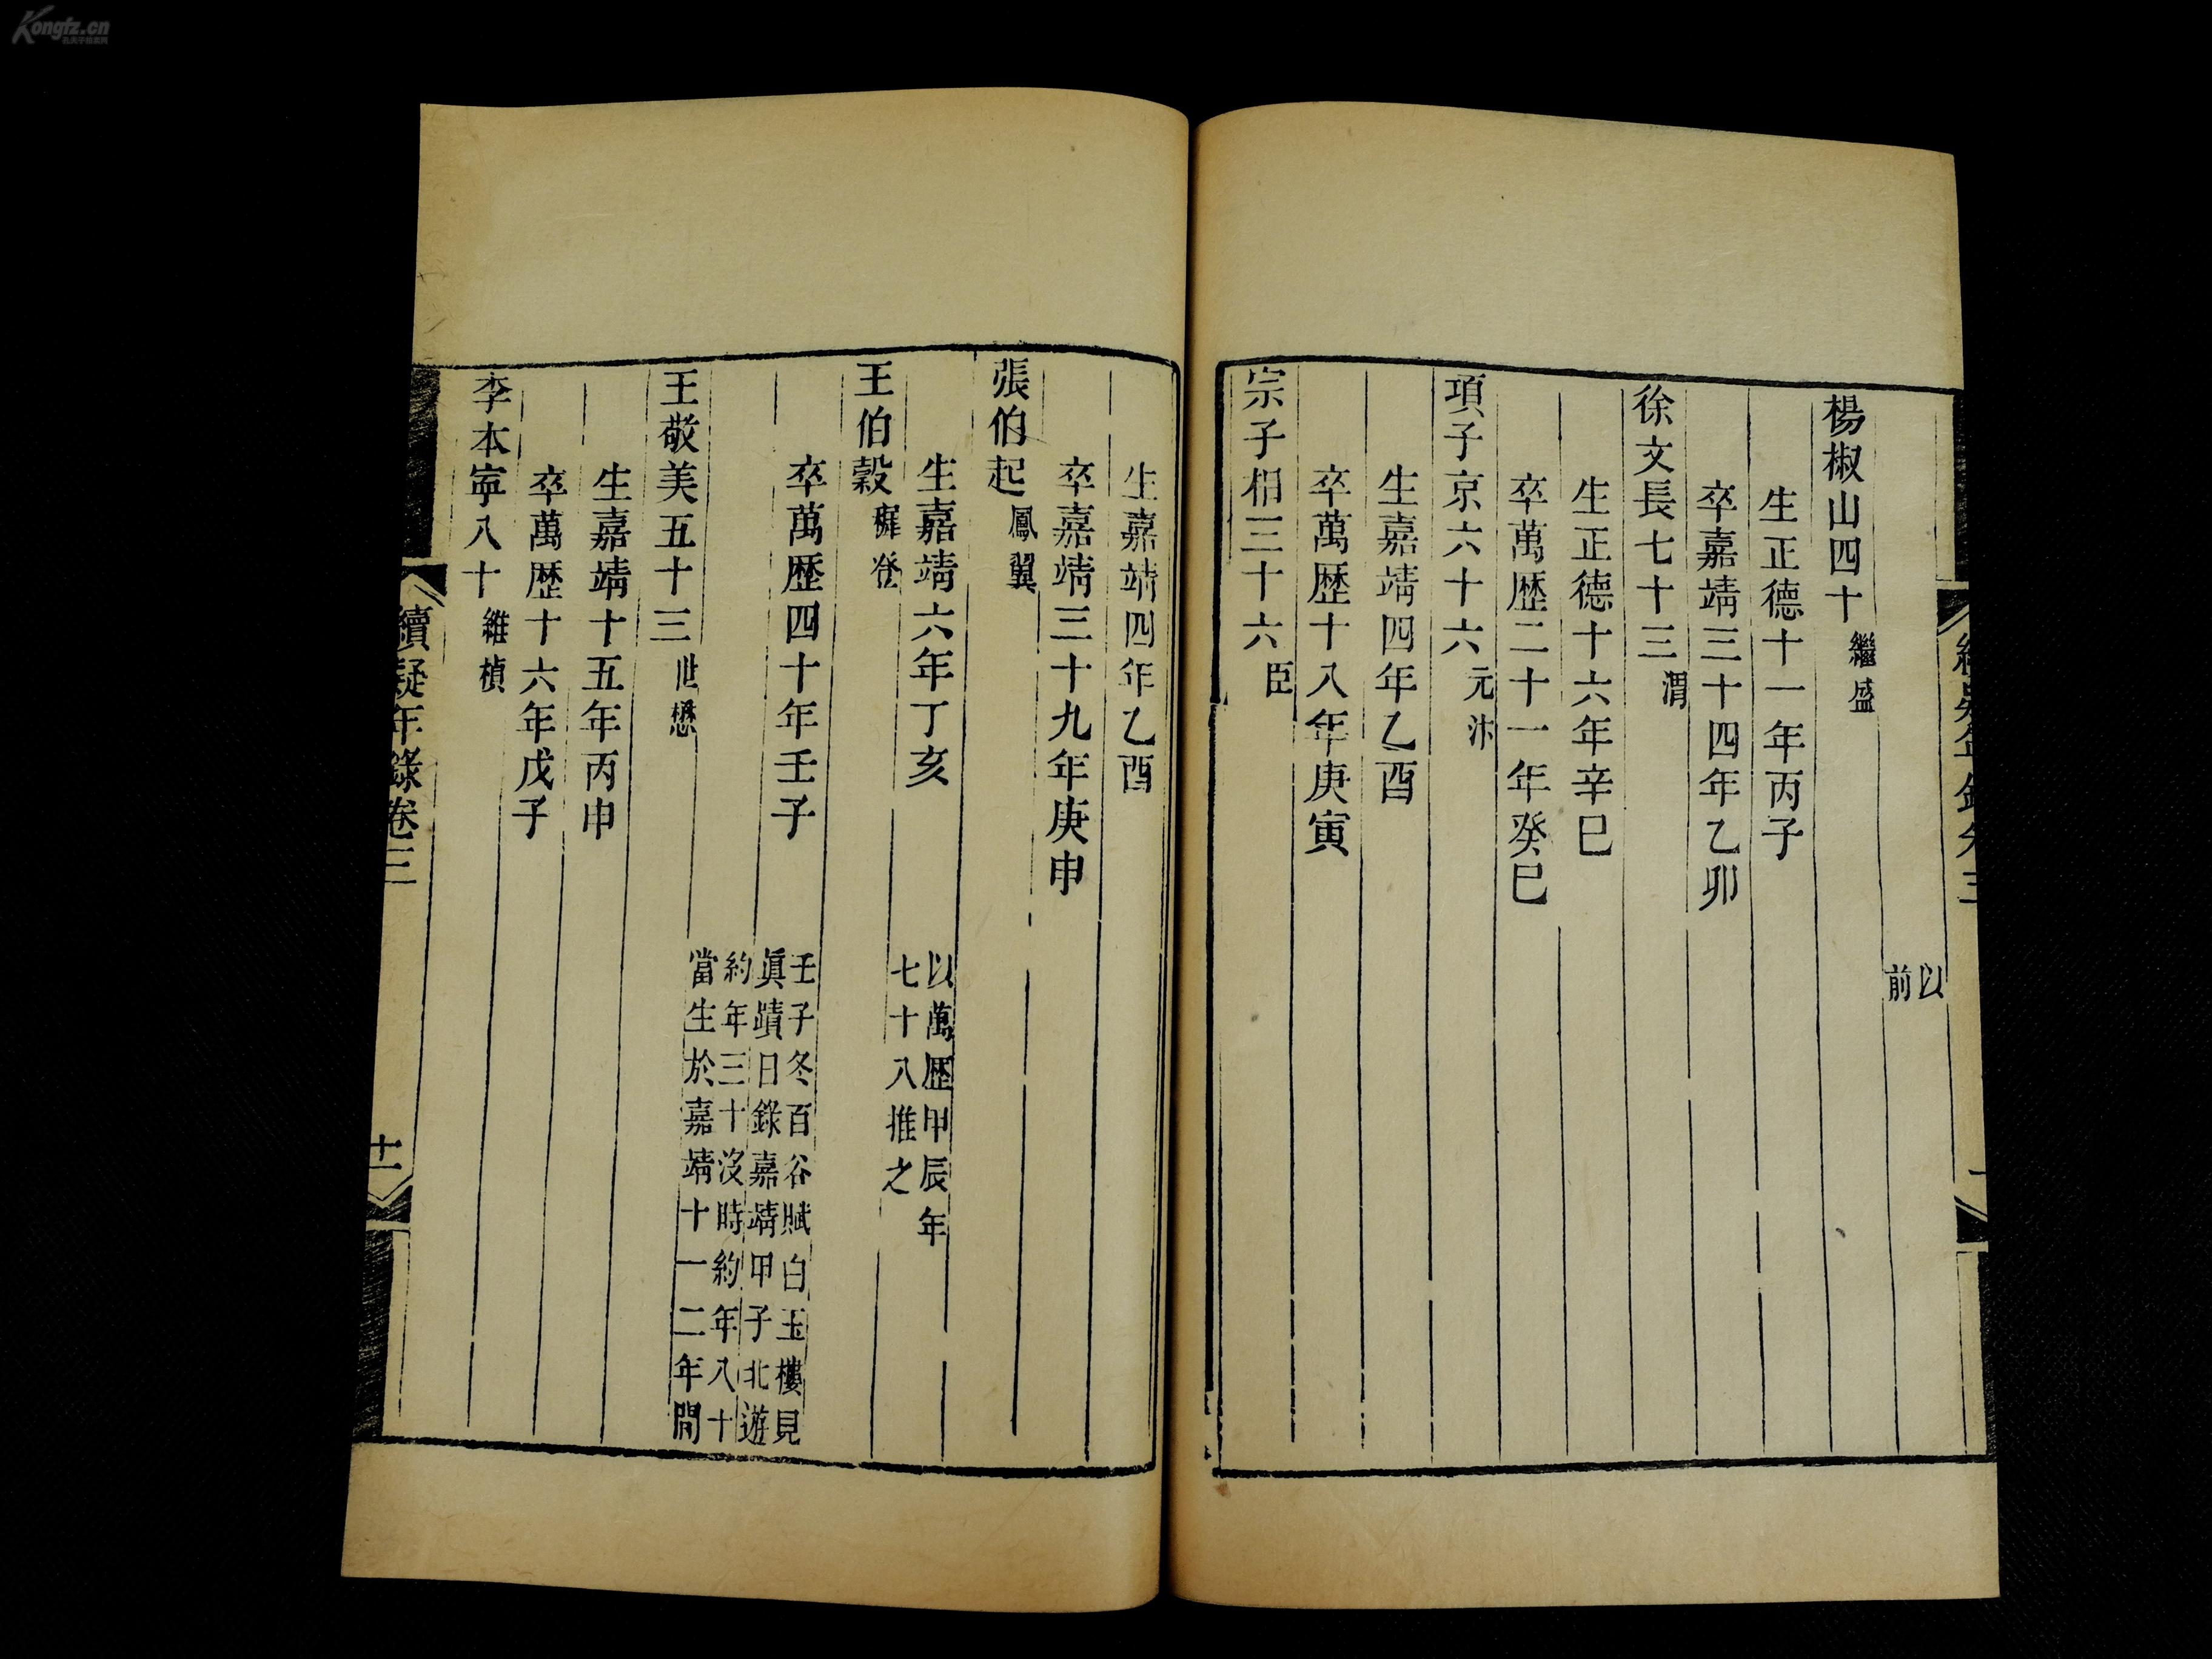 Kongfz.cn
以
前
楊椒山四十繼盛
生正德十一年丙子
卒嘉靖三十四年乙卯
徐文長七十三渭
生正德十六年辛巳
卒萬歷二十一年癸巳
項子京六十六元汴
生嘉靖四年乙酉
卒萬歷十八年庚寅
宗子相三十六臣
生嘉靖四年乙酉
卒嘉靖三十九年庚申
張伯起鳳翼
生嘉靖六年丁亥
以萬歷甲辰年
七十八推之
王伯縠穉登
卒萬歷四十年壬子
壬子冬百谷賦白玉樓見
眞蹟日錄嘉靖甲子北遊
約年三十沒時約年八十
當生於嘉靖十一二年閒
王敬美五十三世懋
生嘉靖十五年丙申
卒萬歷十六年戊子
李本寧八十維楨
續疑年錄卷三
十一